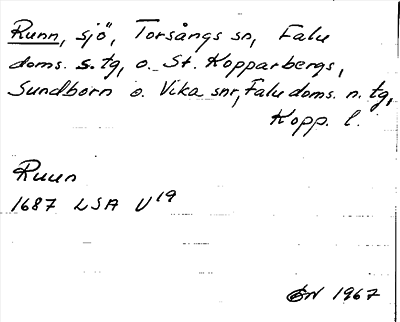 Runn, sjö, Torsångs sn, Falu
doms. s. tg, o. St. Kopparbergs,
Sundborn o. Vika snr, Falu doms. n. tg,
Kopp. l.
Ruun
1687 LSA U¹⁹
GN 1967